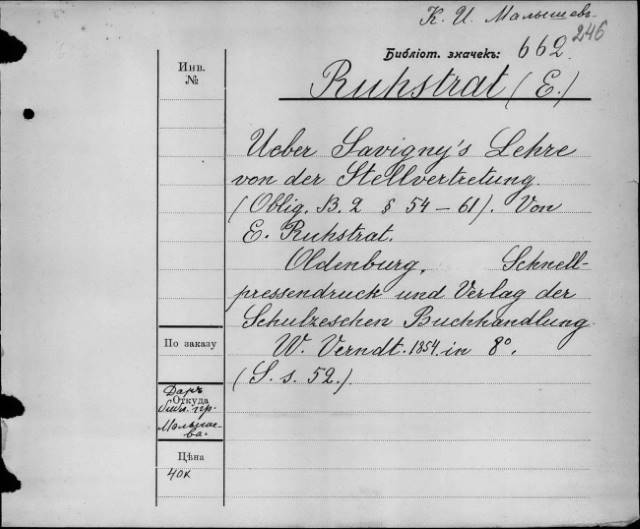 К. И. Малышевъ
246
Библіот. значекъ: 662
Инв.
№
Ruhstrat (E.)
Ueber Savigny's Lehre
von der Stellvertretung.
(Oblig. B. 2 § 54 – 61). Von
E. Ruhstrat.
Oldenburg, Schnell-
pressendruck und Verlag der
Schulzeschen Buchhandlung
W. Verndt. 1854. in 8°.
(S. s. 52.)
По заказу
Даръ
Откуда
библ. пр.
Малыше-
ва.
Цѣна
40к